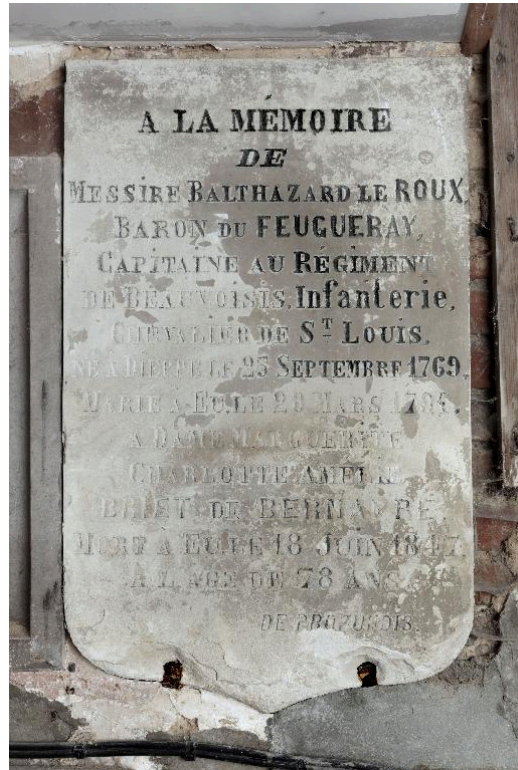 A LA MÉMOIRE
DE
MESSIRE BALTHAZARD LE ROUX,
BARON DU FEUGUERAY,
CAPITAINE AU RÉGIMENT
DE BEAUVOISIS, Infanterie,
CHEVALIER DE ST LOUIS,
NÉ A DIEPPE LE 25 SEPTEMBRE 1769,
MARIÉ A EU, LE 29 MARS 1794,
A DAME MARGUERITE
CHARLOTTE AMELIE
BRIET DE BERNAPRÉ
MORT A EU, LE 18 JUIN 1847,
A L'AGE DE 78 ANS.
DE PROFUNDIS.